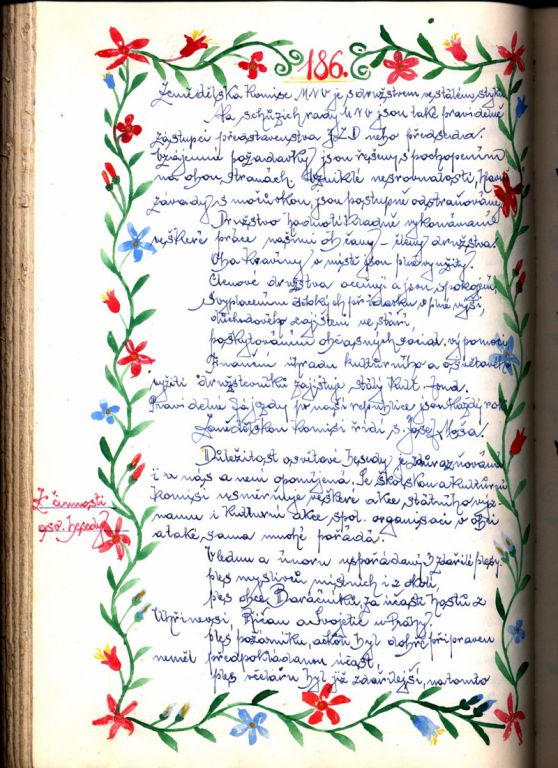 186.
Zemědělská komise MNV je s družstvem ve stálém styku
Na schůzích rady MNV jsou tak pravidelně
zástupci představenstva JZD neho předseda.
Vzájemné požadavky jsou řešeny s pochopením
na obou stranách. Vzniklé nesrovnalosti,
závady s močůvkou, jsou postupně odstraňovány
Družstvo hodnotí kladně vykonávané
veškeré práce našimi občany – členy družstva.
Oba kravíny v místě jsou plně využity.
Členové družstva oceňují a jsou spokojeni
s vyplacením dětských přídavků v plné výši,
důchodového zajištění ve stáří,
poskytováním občasných social. výpomocí
úhradu kulturního a osvětového
vyžití družstevníků zajišťuje stálý kult. fond.
Pravidelné zájezdy po naší republice jsou každý rok
Zemědělskou komisi řídí s. Josef
Důležitost osvětové besedy je zdůrazňována
i u nás a není opomíjena. Se školskou a kulturní
komisí usměrňuje veškeré akce, státního význ-
namu i kulturní akce spol. organisací v obci
a také sama mnohé pořádá.
Z činnosti
osv. besedy
V lednu a únoru uspořádány 3 zdařilé plesy
ples myslivců místních i z okolí,
ples obce Baráčníků, za účasti hostů z
Uhříněvsi, Říčan a Svojetic u Prahy.
Ples požárníků, ačkoliv byl dobře připraven
neměl předpokládanou účast.
Ples včelařů byl již zdařilejší, na tomto